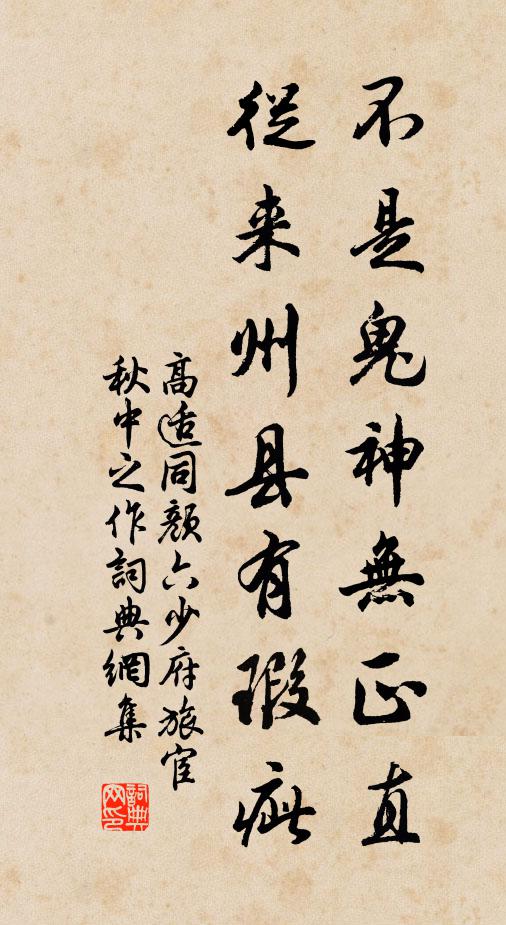 不是鬼神無正直
從来州县有瑕疵
高适同顏六少府旅宦
秋中之作詞典網集
詞典网印